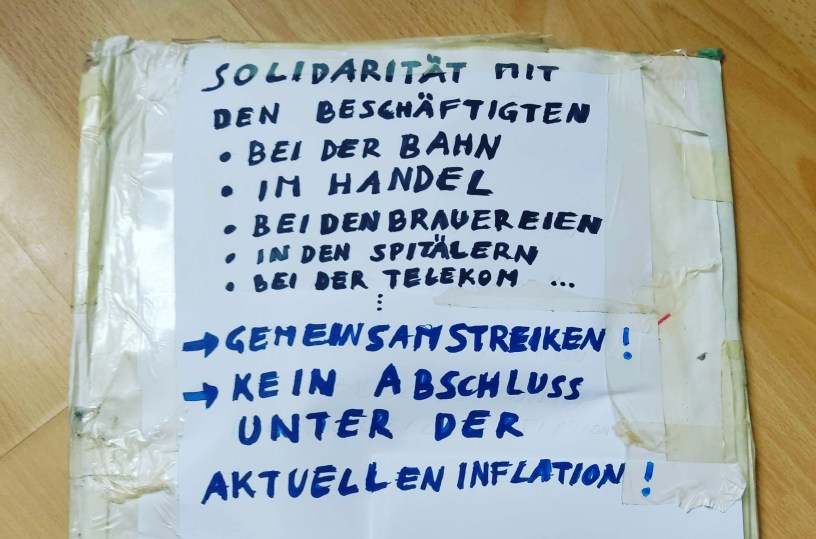 SOLIDARITÄT MIT
DEN BESCHÄFTIGTEN
• BEI DER BAHN
• IM HANDEL
• BEI DEN BRAUEREIEN
• IN DEN SPITÄLERN
• BEI DER TELEKOM ...
⋮
→ GEMEINSAM STREIKEN !
→ KEIN ABSCHLUSS
UNTER DER
AKTUELLEN INFLATION !